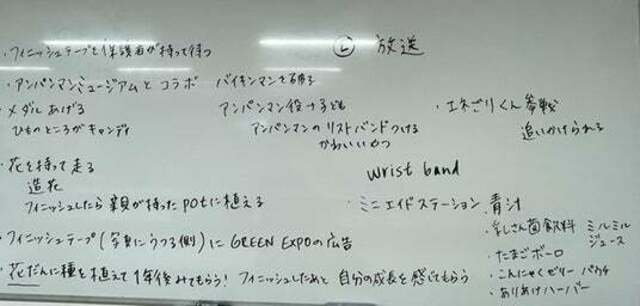 ・フィニッシュテープを保護者が持って待つ
㋹ 放送
・アンパンマンミュージアムと コラボ バイキンマンを
・メダル あげる アンパンマン役→子ども
ひものところがキャンディ アンパンマンの リストバンドつける
かわいいやつ
・エネごりくん参戦
追いかけられる
・花を持って走る
造花
フィニッシュしたら 親が持った potに植える
wrist band
・ミニエイドステーション
・青汁
・乳さん菌飲料 ミルミル
ジュース
・たまごボーロ
・こんにゃくゼリー パウチ
・ありあけハーバー
・フィニッシュテープ(写真にうつる側)に GREEN EXPOの広告
・花だんに種を植えて 1年後みてもらう! フィニッシュしたあと 自分の成長を感じてもらう